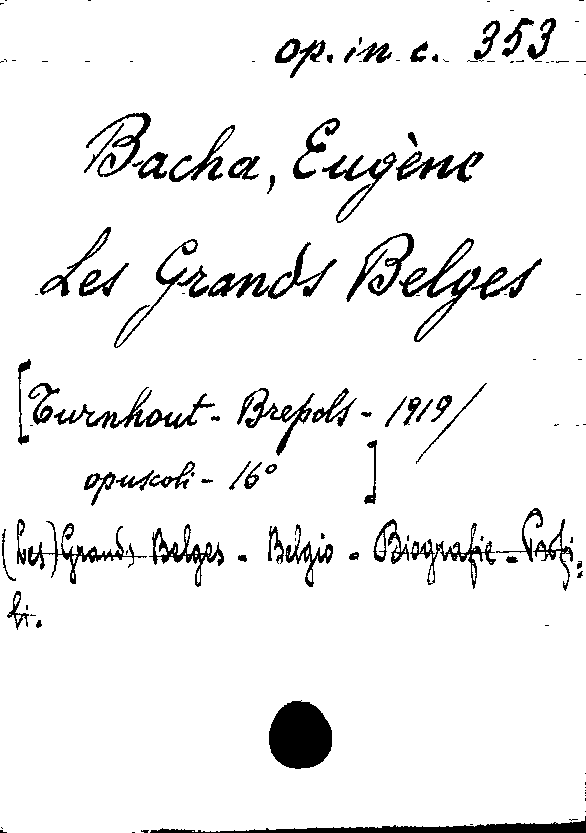 op. in c. 353
Bacha, Eugène
Les Grands Belges
[Turnhout - Brepols - 1919/
opuscoli - 16° ]
(Les) Grands Belges - Belgio - Biografie - Profi:
li.